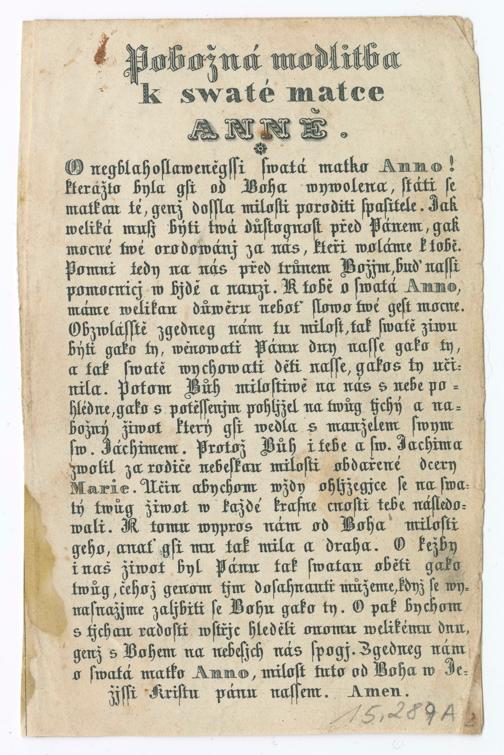 Pobožná modlitba
k swaté matce
ANNĚ.
O negblahoslaweněgssi swatá matko Anno!
kterážto byla gsi od Boha wywolena, státi se
matkau té, genž dossla milosti poroditi spasitele. Jak
weliká musj býti twá důstognost před Pánem, gak
mocné twé orodowánj za nás, kteři woláme k tobě.
Pomni tedy na nás před trůnem Božjm, buď nassi
pomocnicj w bjdě a nauzi. K tobě o swatá Anno,
máme welikau důwěru neboť slowo twé gest mocne.
Obzwlásstě zgedneg nám tu milost, tak swatě žiwu
býti gako ty, wěnowati Pánu dny nasse gako ty,
a tak swatě wychowati děti nasse, gakos ty uči-
nila. Potom Bůh milostiwě na nás s nebe po-
hlédne, gako s potěssenjm pohljžel na twůg tjchý a na-
božný žiwot který gsi wedla s manželem swym
sw. Jáchimem. Protož Bůh i tebe a sw. Jachima
zwolil za rodiče nebeskau milosti obdařené dcery
Marie. Učin abychom wždy ohljžegjce se na swa-
tý twůg žiwot w každé krasne cnosti tebe následo-
wali. K tomu wypros nám od Boha milosti
geho, anať gsi mu tak mila a draha. O kežby
i náš žiwot byl Pánu tak swatau oběti gako
twůg, čehož genom tjm dosahnauti můžeme, když se wy-
nasnažjme zaljbiti se Bohu gako ty. O pak bychom
s tjchau radosti wstřjc hleděli onomu welikému dnu,
genž s Bohem na nebesjch nás spogj. Zgedneg nám
o swatá matko Anno, milost tuto od Boha w Je-
žjssi Kristu pánu nassem. Amen.
15.289A